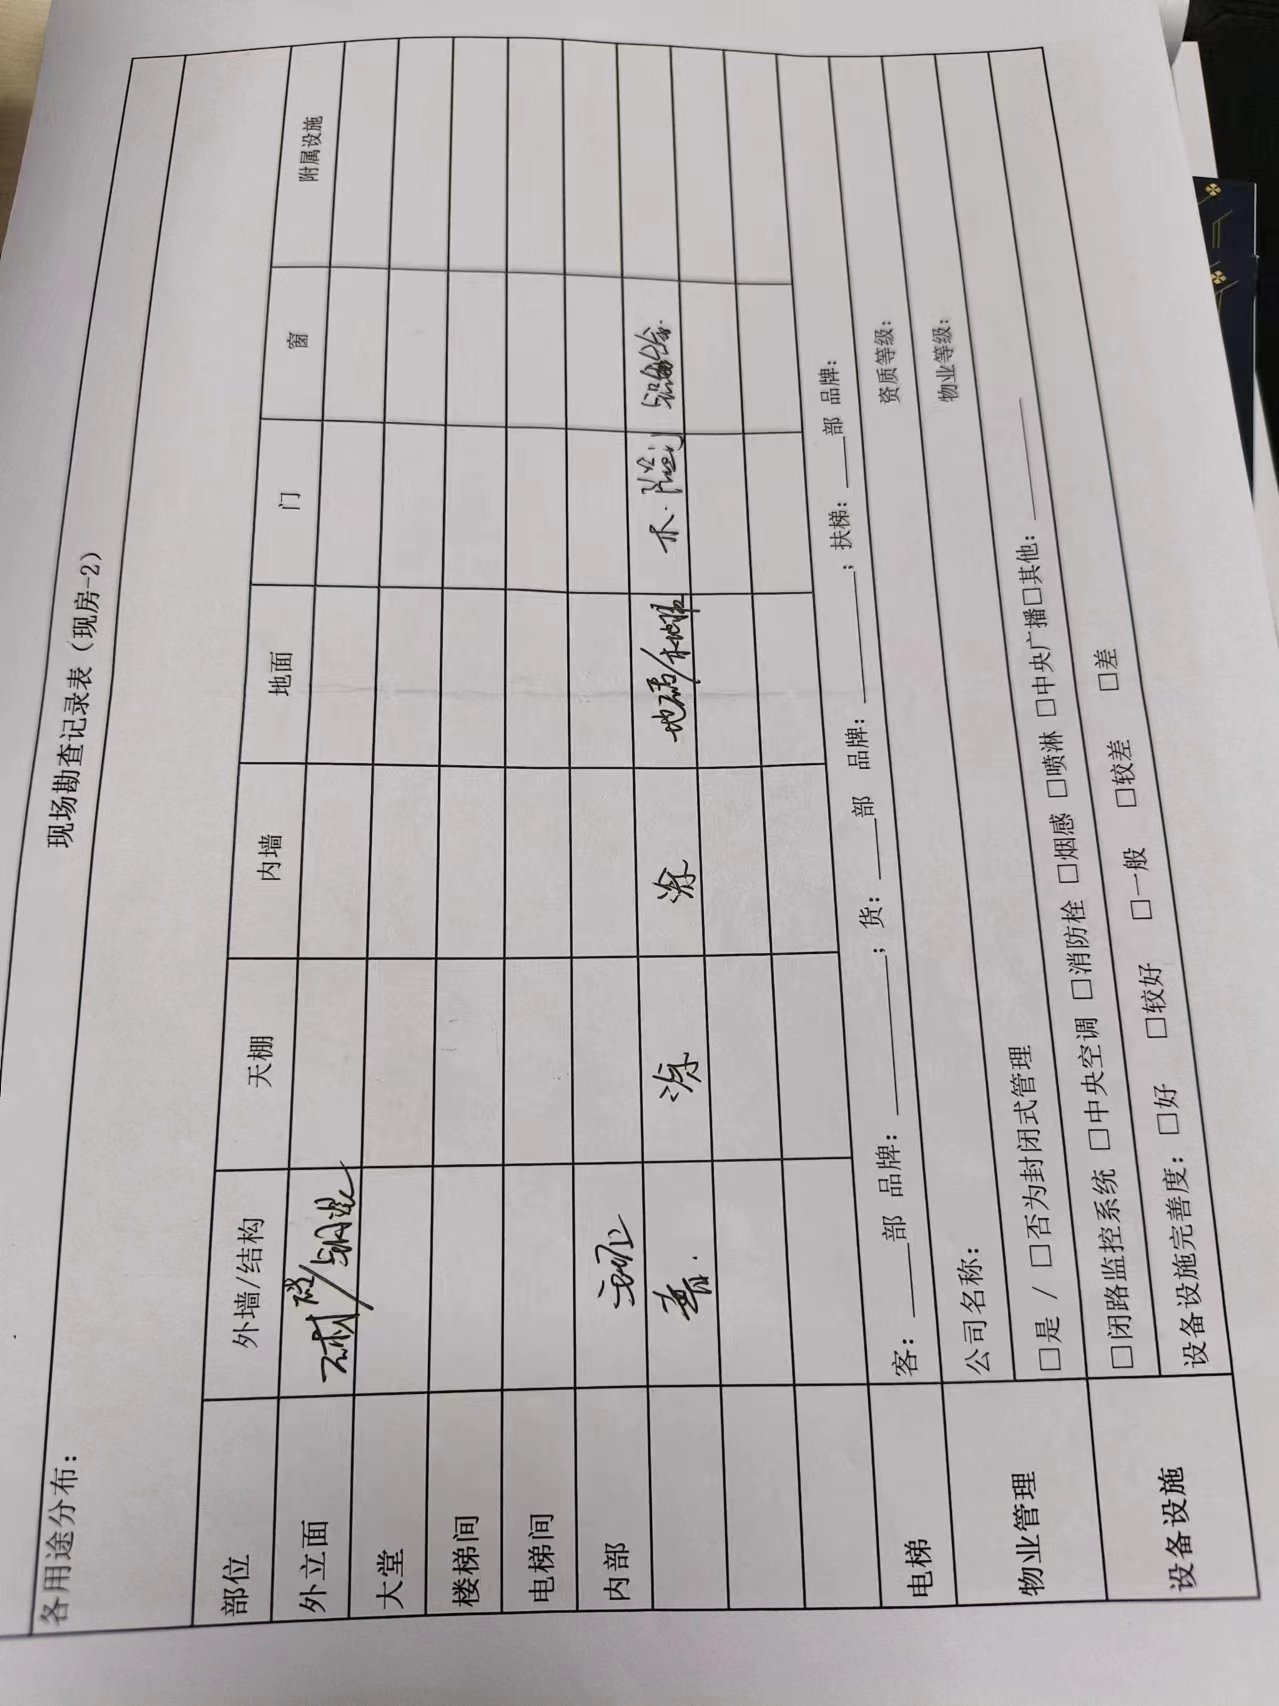 现场勘查记录表（现房-2）
各用途分布：
部位 外墙/结构 天棚 内墙 地面 门 窗 附属设施
外立面
大堂
楼梯间
电梯间
内部
普. 涂 涂 地砖/木地板 木. 铝合金.
电梯 客：____部 品牌：________；货：____部 品牌：________；扶梯：____部 品牌：
物业管理 公司名称： 资质等级：
□是 / □否为封闭式管理 物业等级：
设备设施 □闭路监控系统 □中央空调 □消防栓 □烟感 □喷淋 □中央广播□其他：________
设备设施完善度：□好 □较好 □一般 □较差 □差